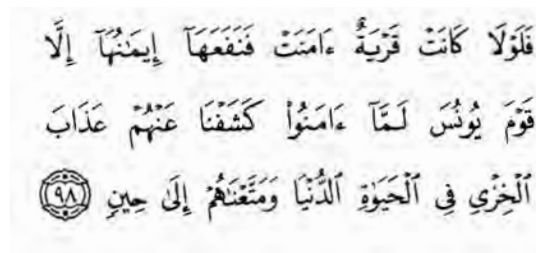 فَلَوۡلَا كَانَتۡ قَرۡيَةٌ ءَامَنَتۡ فَنَفَعَهَآ إِيمَٰنُهَآ إِلَّا
قَوۡمَ يُونُسَ لَمَّآ ءَامَنُواْ كَشَفۡنَا عَنۡهُمۡ عَذَابَ
ٱلۡخِزۡيِ فِي ٱلۡحَيَوٰةِ ٱلدُّنۡيَا وَمَتَّعۡنَٰهُمۡ إِلَىٰ حِينٖ ٩٨